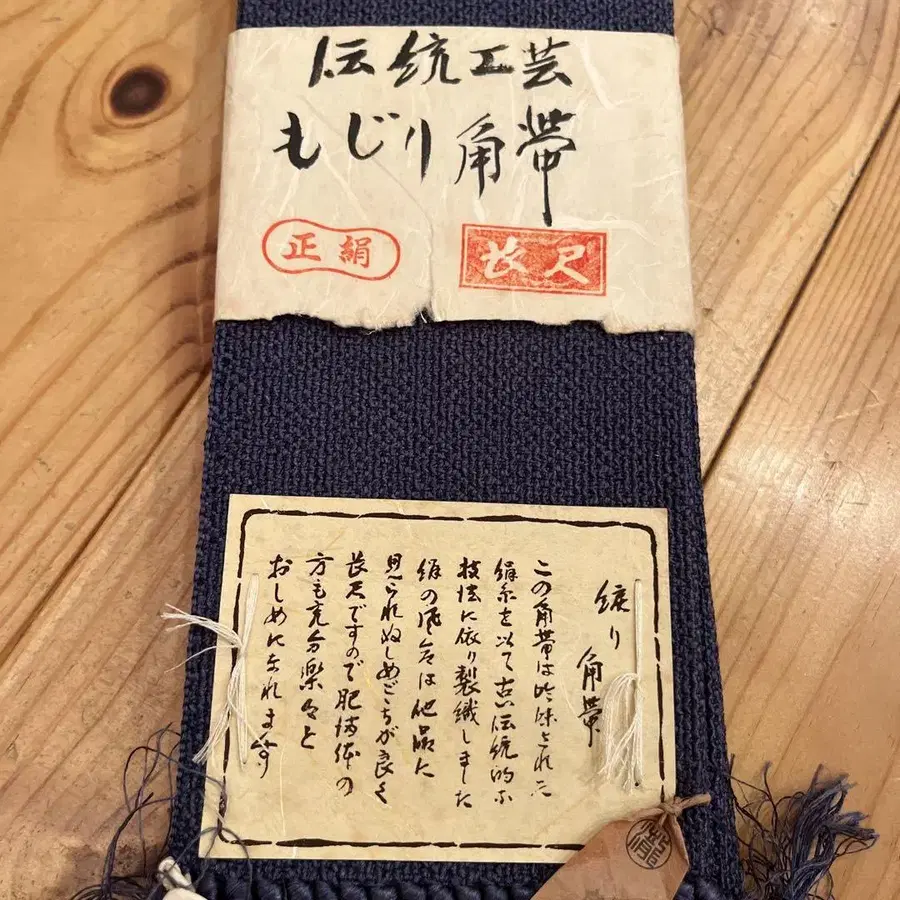 伝統工芸
もじり角帯
正絹
長尺
綟り角帯
この角帯は吟味された
絹糸を以て古い伝統的な
技法に依り製織しました
絹の風合は他品に
見られぬしめごこちが良く
長尺ですので肥満体の
方も充分楽々と
おしめになれます